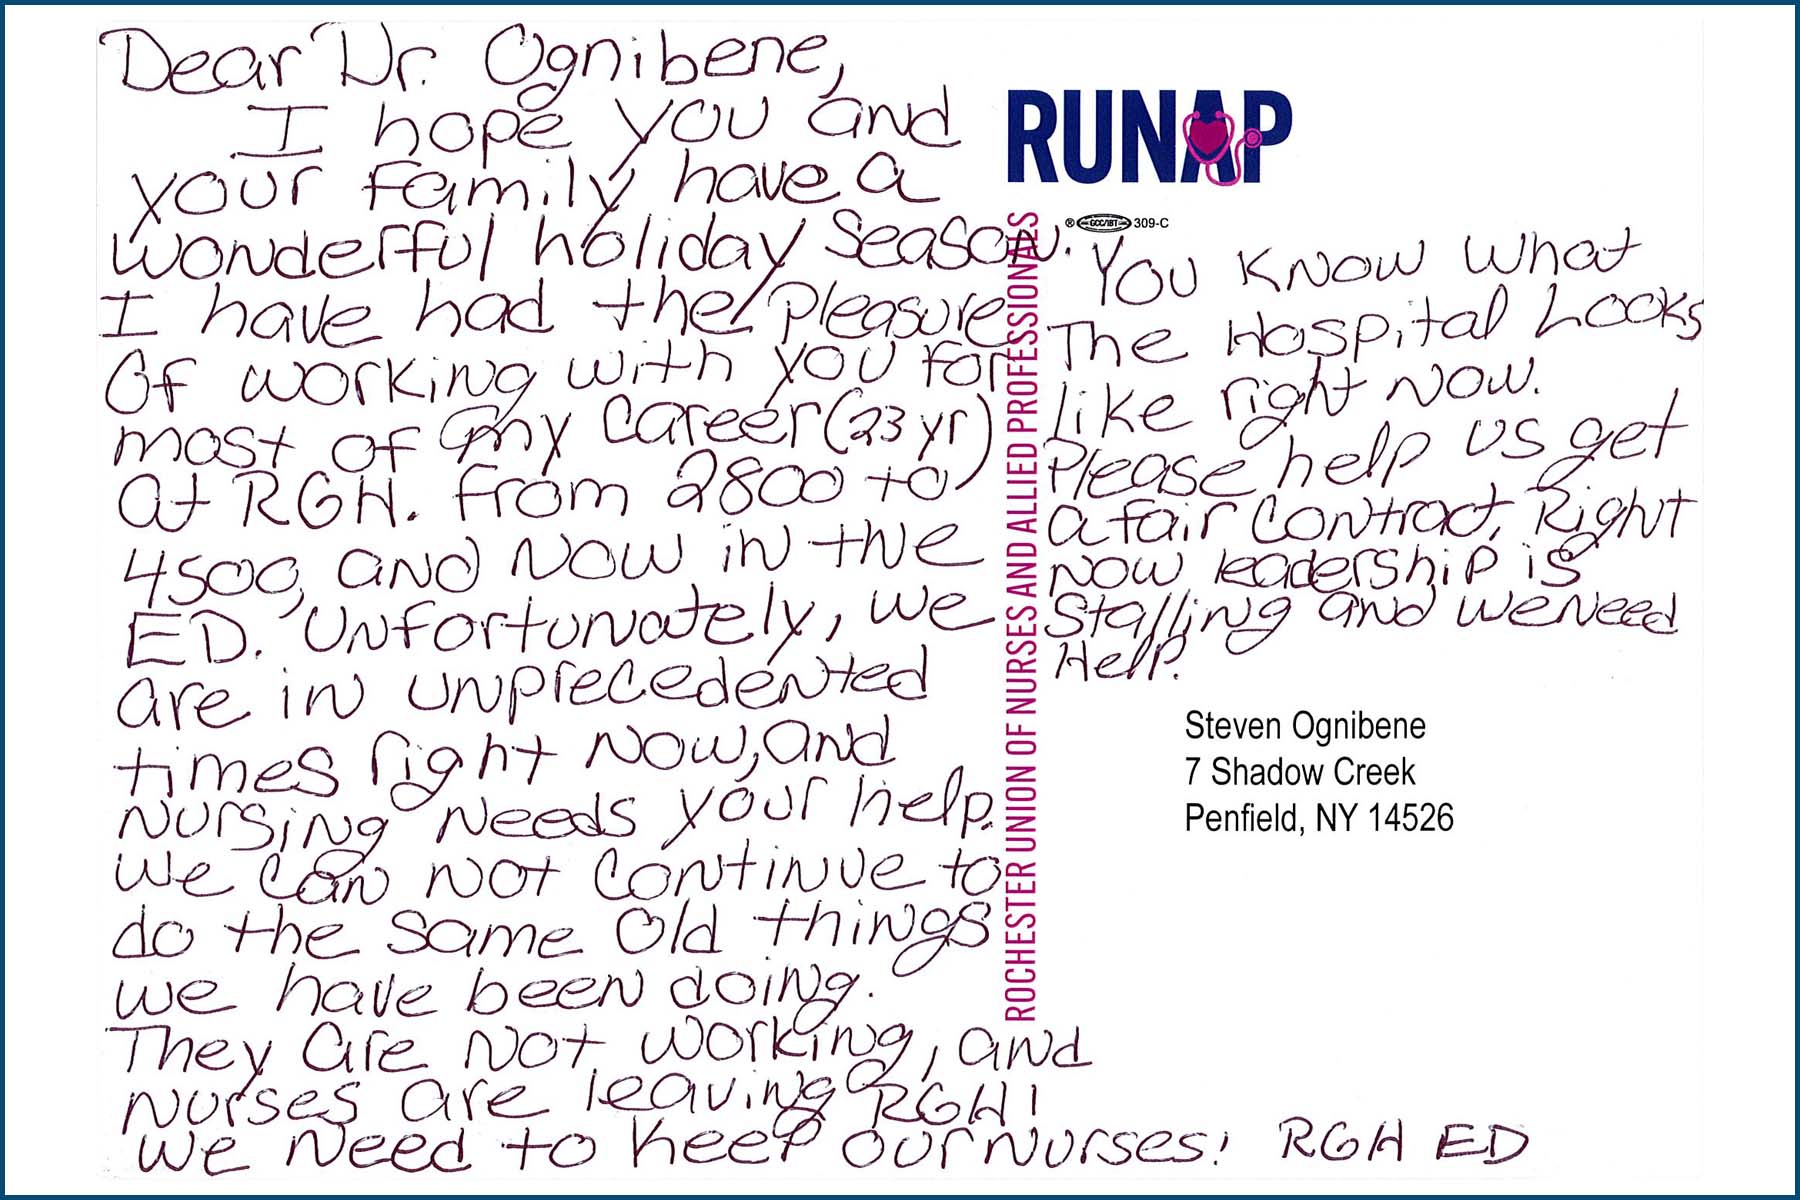 Dear Dr. Ognibene,
I hope you and
your family have a
wonderful holiday season.
I have had the pleasure
Of working with you for
most of my career (23 yr)
at RGH. From 2800 to
4500, and now in the
ED. Unfortunately, we
are in unprecedented
times right now, and
nursing needs your help.
We can not continue to
do the same old things
we have been doing.
They are not working, and
nurses are leaving RGH!
We need to keep our nurses! RGH ED
RUNAP
ROCHESTER UNION OF NURSES AND ALLIED PROFESSIONALS
® GCC/IBT 309-C
You know what
The Hospital Looks
like right now.
Please help us get
a fair contract. Right
now leadership is
Stalling and we need
Help.
Steven Ognibene
7 Shadow Creek
Penfield, NY 14526